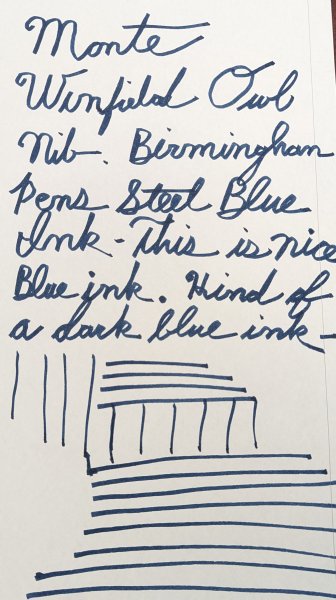 Monte
Winfield Owl
Nib. Birmingham
Pens Steel Blue
Ink - This is nice
Blue ink. Kind of
a dark blue ink -